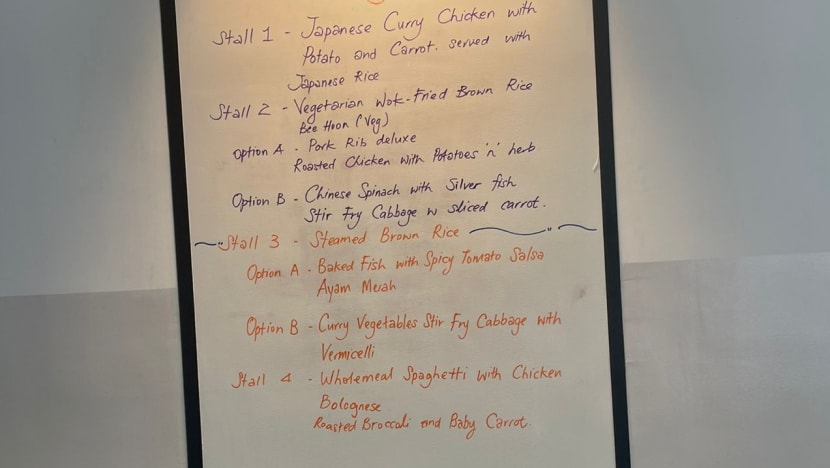 Stall 1 - Japanese Curry Chicken with
Potato and Carrot. served with
Japanese Rice
Stall 2 - Vegetarian Wok-Fried Brown Rice
Bee Hoon (Veg)
Option A - Pork Rib deluxe
Roasted Chicken with Potatoes 'n' herb
Option B - Chinese Spinach with Silver fish
Stir Fry Cabbage w sliced carrot.
Stall 3 - Steamed Brown Rice
Option A - Baked Fish with Spicy Tomato Salsa
Ayam Merah
Option B - Curry Vegetables Stir Fry Cabbage with
Vermicelli
Stall 4 - Wholemeal Spaghetti with Chicken
Bolognese
Roasted Broccoli and Baby Carrot.